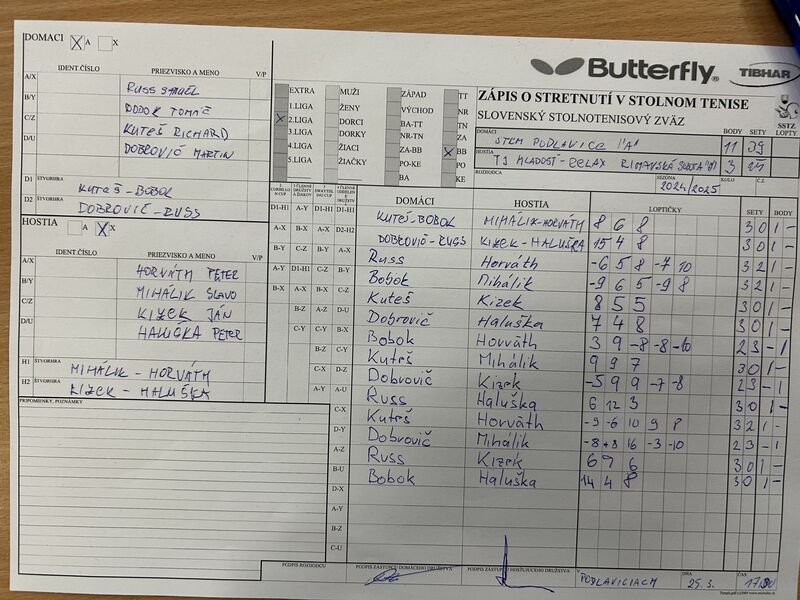 DOMACI X A X
IDENT.ČÍSLO PRIEZVISKO A MENO V/P
A/X RUSS
B/Y BOBOK TOMÁŠ
C/Z KUTEŠ RICHARD
D/U DOBROVIČ MARTIN
D1 ŠTVORHRA KUTEŠ-BOBOK
D2 ŠTVORHRA DOBROVIČ-RUSS
HOSTIA A X X
IDENT.ČÍSLO PRIEZVISKO A MENO V/P
A/X HORVÁTH PETER
B/Y MIHÁLIK SLAVO
C/Z KIZEK JÁN
D/U HALUŠKA PETER
H1 ŠTVORHRA MIHÁLIK - HORVÁTH
H2 ŠTVORHRA KIZEK - HALUŠKA
PRIPOMIENKY, POZNÁMKY
Butterfly
TIBHAR
SSTZ
EXTRA MUŽI ZÁPAD TT
1.LIGA ŽENY VÝCHOD NR
X 2.LIGA DORCI BA-TT ZA
3.LIGA DORKY NR-TN X BB
4.LIGA ŽIACI ZA-BB PO
5.LIGA ŽIAČKY PO-KE KE
BA
ZÁPIS O STRETNUTÍ V STOLNOM TENISE
SLOVENSKÝ STOLNOTENISOVÝ ZVÄZ
BODY SETY
DOMÁCI STKM PODLAVICE "A" 11 39
HOSTIA TJ MLADOSŤ-RELAX RIMAVSKÁ SOBOTA "A" 3
ROZHODCA SEZÓNA 2024/2025 KOLO Č.Z.
DOMÁCI HOSTIA LOPTIČKY SETY BODY
D1-H1 A-Y D1-H1 D1-H1 KUTEŠ-BOBOK MIHÁLIK-HORVÁTH 8 6 8 3 0 1 -
A-X B-X A-X D2-H2 DOBROVIČ-RUSS KIZEK-HALUŠKA 15 4 8 3 0 1 -
B-Y C-Z B-Y A-X Russ Horváth -6 5 8 -7 10 3 2 1 -
A-Y D1-H1 C-Z B-Y Bobok Mihálik -9 6 5 -9 8 3 2 1 -
B-X A-X B-X C-Z Kuteš Kizek 8 5 5 3 0 1 -
B-Z A-Z D-U Dobrovič Haluška 7 4 8 3 0 1 -
C-Y C-Y B-X Bobok Horváth 3 9 -8 -8 -10 2 3 - 1
B-Z C-Y Kuteš Mihálik 9 9 7 3 0 1 -
C-X D-Z Dobrovič Kizek -5 9 9 -7 -8 2 3 - 1
A-Y A-U Russ Haluška 6 12 3 3 0 1 -
C-X Kuteš Horváth -9 -6 10 9 8 3 2 1 -
D-Y Dobrovič Mihálik -8 +8 16 -3 -10 2 3 - 1
A-Z Russ Kizek 6 9 6 3 0 1 -
B-U Bobok Haluška 14 4 8 3 0 1 -
D-X
A-Y
B-Z
C-U
PODPIS ROZHODCU PODPIS ZÁSTUPCU DOMÁCEHO DRUŽSTVA PODPIS ZÁSTUPCU HOSŤUJÚCEHO DRUŽSTVA V PODLAVICIACH DŇA 25.3. ČAS